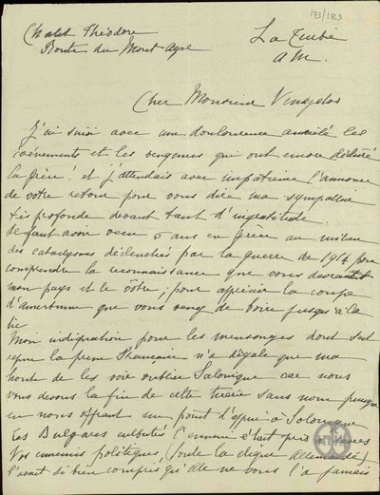 173/183
Chalet Théodore
Route du Mont-Agel
La Turbie
A M.
Cher Monsieur Venizelos
J'ai suivi avec une douloureuse anxiété les
événements et les vengeances qui ont encore déchiré
la Grèce! et j'attendais avec impatience l'annonce
de votre retour pour vous dire ma sympathie
très profonde devant tant d'ingratitude.
Il faut avoir vécu 5 ans en Grèce au milieu
des cataclysmes déclenchés par la guerre de 1914 pour
comprendre la reconnaissance que vous devraient
mon pays et le vôtre; pour apprécier la coupe
d'amertume que vous venez de boire jusqu'à la
lie
Mon indignation pour les mensonges dont s'est
la presse Française n'a d'égale que ma
honte de les voir oublier Salonique car nous
vous devons la fin de cette tuerie sans nom puisque
en nous offrant un point d'appui à Salonique
Les Bulgares culbutés l'ennemi était pris
Vos ennemis politiques, (toute la clique Allemande)
l'avait si bien compris qu'elle ne vous l'a jamais